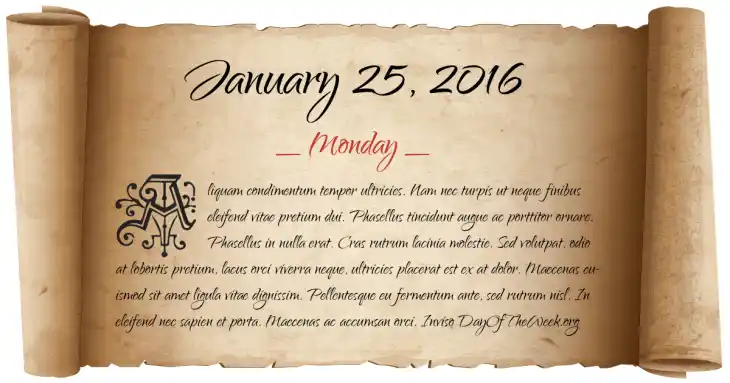 January 25, 2016
_ Monday _
Aliquam condimentum tempor ultricies. Nam nec turpis ut neque finibus
eleifend vitae pretium dui. Phasellus tincidunt augue ac porttitor ornare.
Phasellus in nulla erat. Cras rutrum lacinia molestie. Sed volutpat, odio
at lobortis pretium, lacus orci viverra neque, ultricies placerat est ex at dolor. Maecenas eu-
ismod sit amet ligula vitae dignissim. Pellentesque eu fermentum ante, sed rutrum nisl. In
eleifend nec sapien et porta. Maecenas ac accumsan orci. Inviso DayOfTheWeek.org